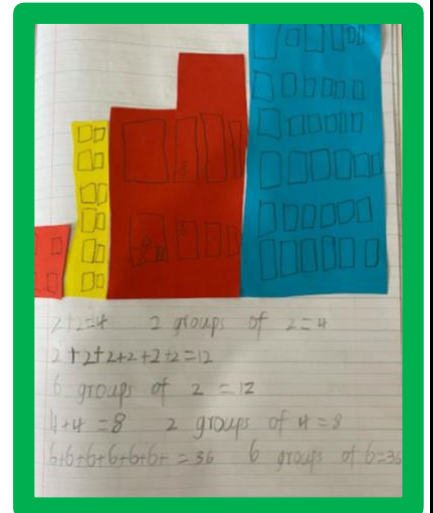 2+2=4 2 groups of 2=4
2+2+2+2+2+2=12
6 groups of 2 =12
4+4 =8 2 groups of 4=8
6+6+6+6+6+6+ = 36 6 groups of 6=36